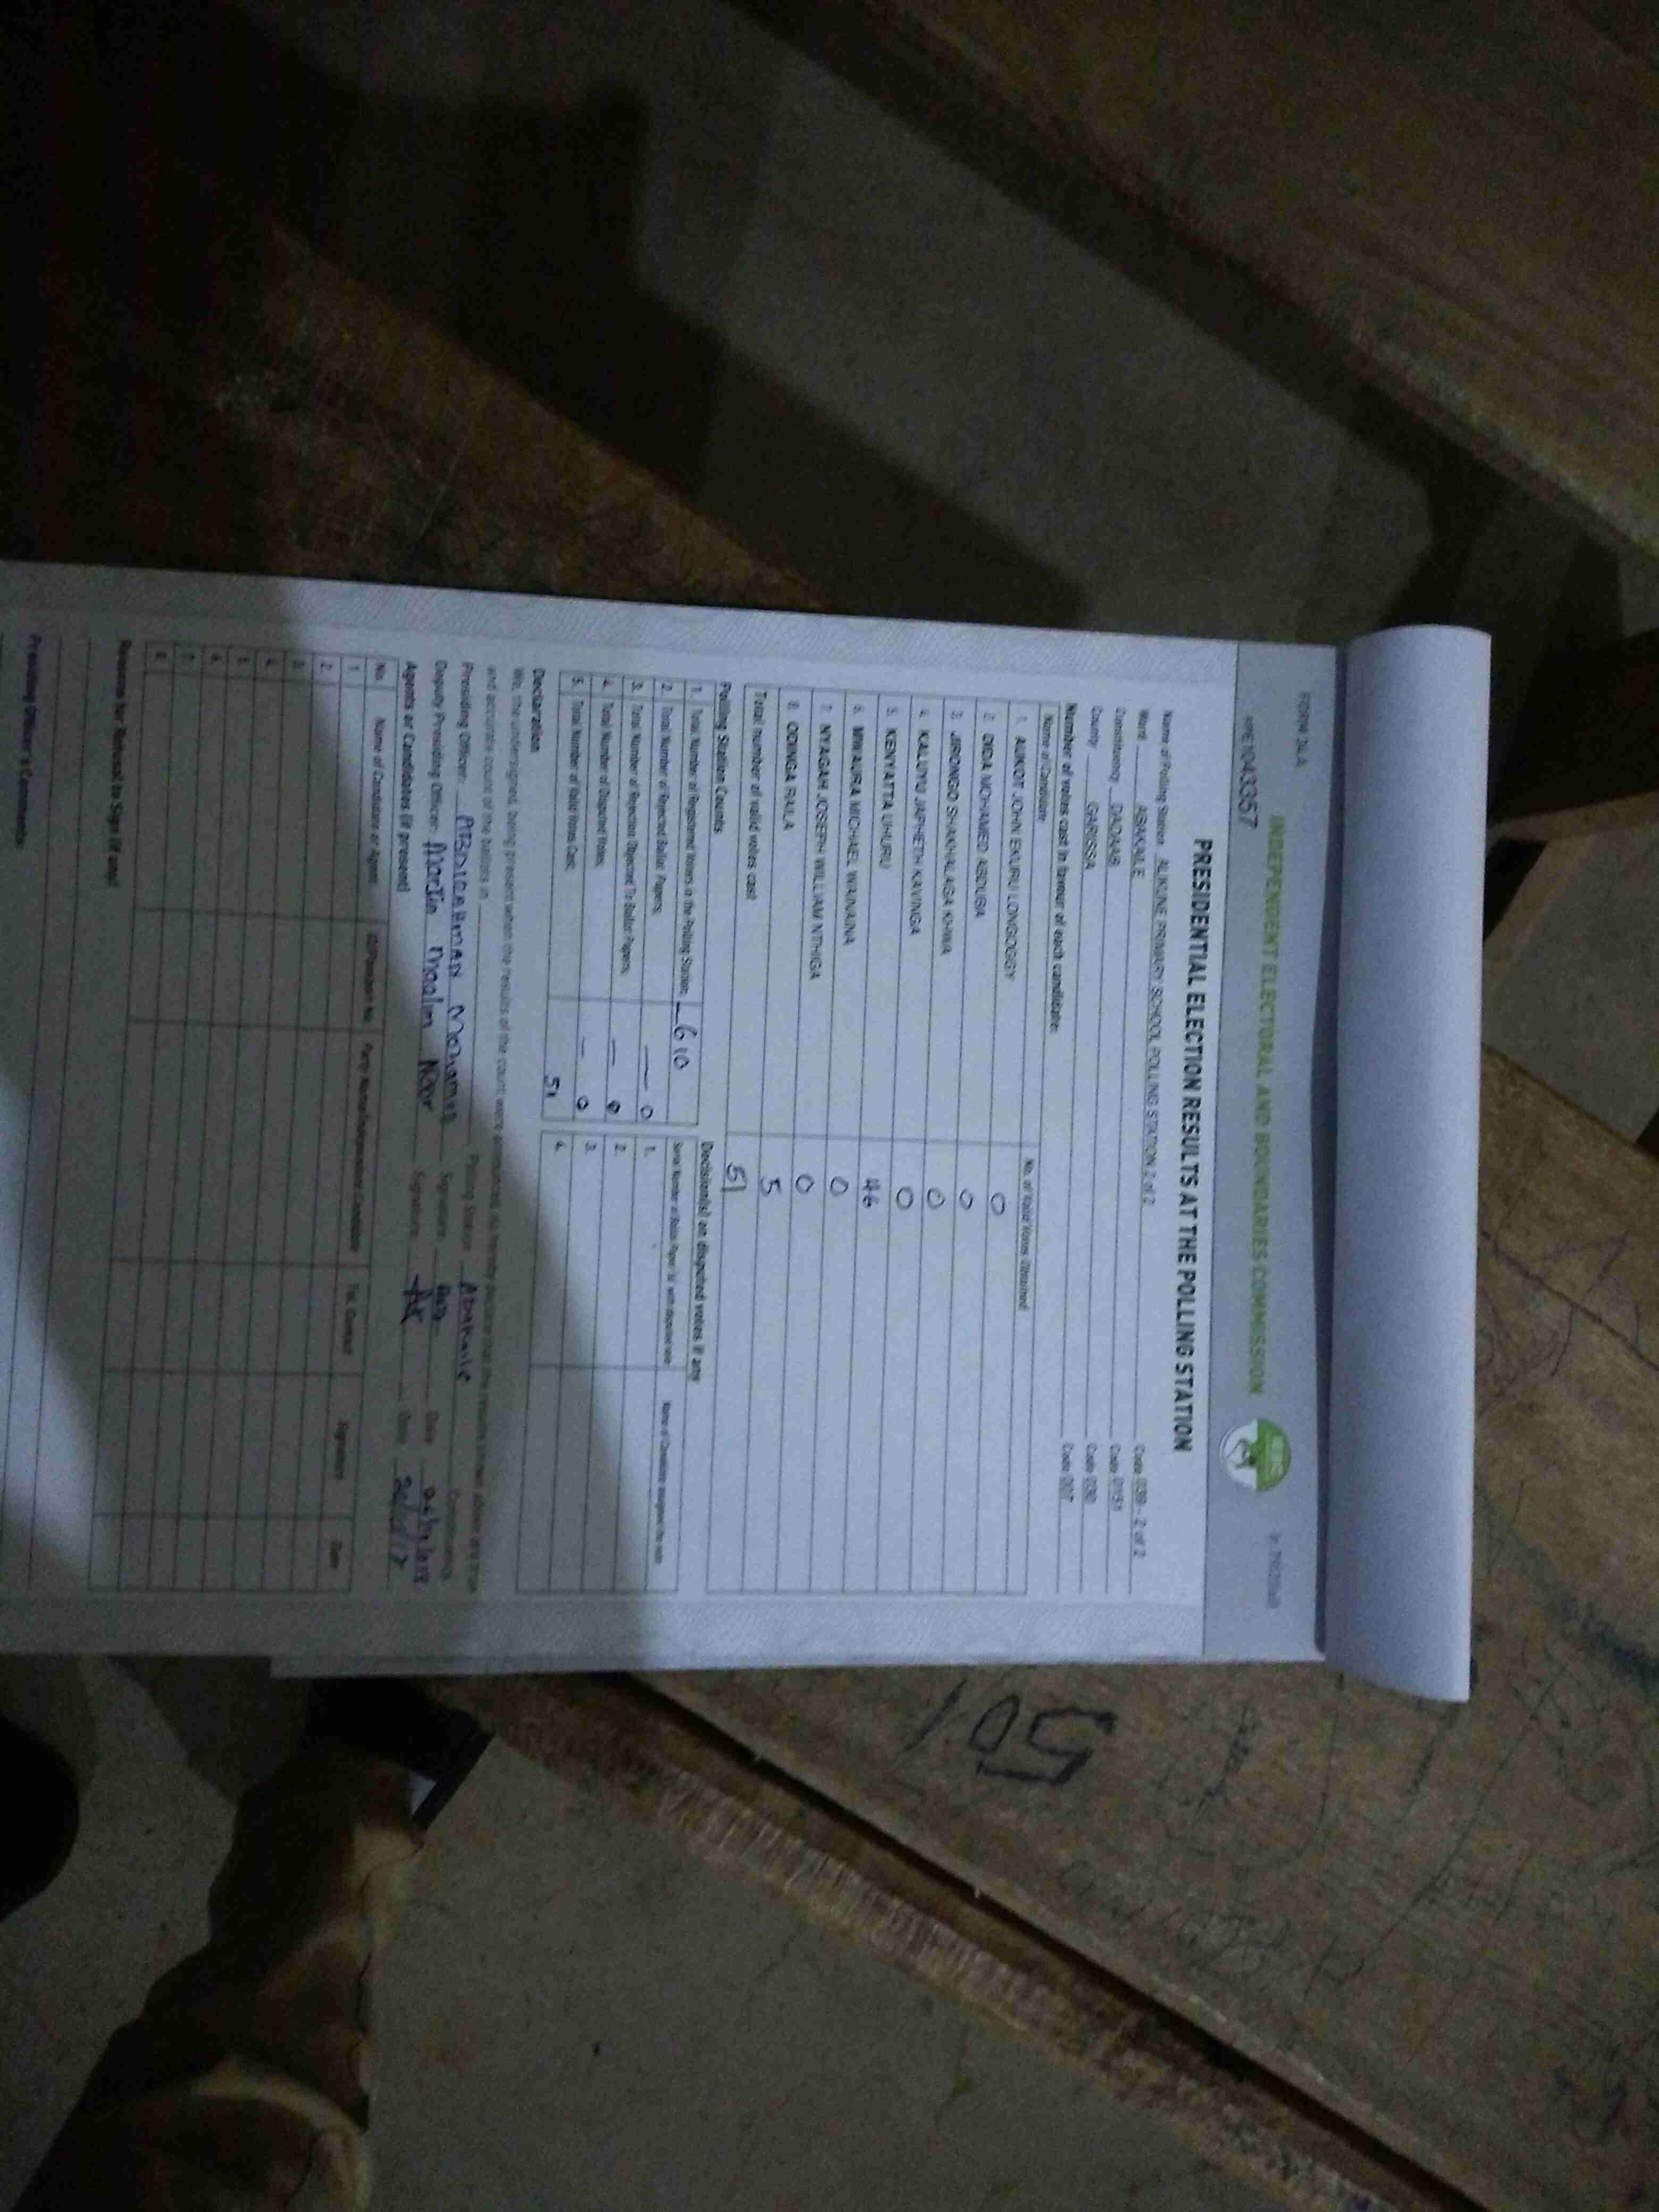 FORM 34A
INDEPENDENT ELECTORAL AND BOUNDARIES COMMISSION
PRESIDENTIAL ELECTION RESULTS AT THE POLLING STATION
Name of Polling Station ALIKUNE PRIMARY SCHOOL POLLING STATION 2 of 2 Code 039 - 2 of 2
Ward ABAKAILE Code 0151
Constituency DADAAB Code 030
County GARISSA Code 007
Number of votes cast in favour of each candidate:
Name of Candidate No. of Valid Votes Obtained
1. AUKOT JOHN EKURU LONGOGGY 0
2. DIDA MOHAMED ABDUBA 0
3. JIRONGO SHAKHALAGA KHWA 0
4. KALUYU JAPHETH KAVINGA 0
5. KENYATTA UHURU 46
6. MWAURA MICHAEL WAINAINA 0
7. NYAGAH JOSEPH WILLIAM NTHIGA 0
8. ODINGA RAILA 5
Total number of valid votes cast 51
Polling Station Counts
1. Total Number of Registered Voters in the Polling Station; 610
2. Total Number of Rejected Ballot Papers; 0
3. Total Number of Rejection Objected To Ballot Papers; 0
4. Total Number of Disputed Votes; 0
5. Total Number of Valid Votes Cast; 51
Decision(s) on disputed votes if any
1.
2.
3.
4.
Declaration
We, the undersigned, being present when the results of the count were announced, do hereby declare that the results shown above are true
and accurate count of the ballots in Polling Station Abakaile Constituency
Presiding Officer: ABDIRAHMAN Mohamed Signature Date
Deputy Presiding Officer: Martin Maalim Noor Signature Date
Agents or Candidates (if present)
No. Name of Candidate or Agent ID/Passport No Party Name/Independent Candidate Tel. Contact Signature Date
1.
2.
3.
4.
5.
6.
7.
8.
Reasons for Refusal to Sign (if any)
Presiding Officer's Comments:
501